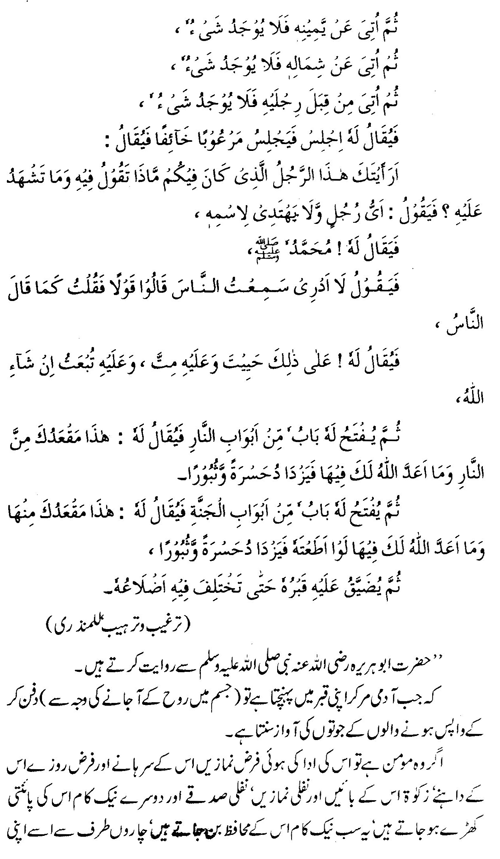 ثُمَّ اُتِیَ عَنْ یَّمِیْنِهٖ فَلَا یُوْجَدُ شَیْ ءٌ ،
ثُمَّ اُتِیَ عَنْ شِمَالِهٖ فَلَا یُوْجَدُ شَیْ ءٌ ،
ثُمَّ اُتِیَ مِنْ قِبَلِ رِجْلَیْهِ فَلَا یُوْجَدُ شَیْ ءٌ ،
فَیُقَالُ لَهٗ اِجْلِسْ فَیَجْلِسُ مَرْعُوْبًا خَآئِفًا فَیُقَالُ :
اَرَاَیْتَكَ هٰذَا الرَّجُلَ الَّذِیْ كَانَ فِیْكُمْ مَّاذَا تَقُوْلُ فِیْهِ وَمَا تَشْهَدُ
عَلَیْهِ ؟ فَیَقُوْلُ : اَیُّ رَجُلٍ وَّلَا یَهْتَدِیْ لِاسْمِهٖ ،
فَیُقَالُ لَهٗ ! مُحَمَّدٌ ﷺ،
فَیَقُوْلُ لَا اَدْرِیْ سَمِعْتُ النَّاسَ قَالُوْا قَوْلًا فَقُلْتُ كَمَا قَالَ
النَّاسُ ،
فَیُقَالُ لَهٗ ! عَلٰی ذٰلِكَ حَیِیْتَ وَعَلَیْهِ مِتَّ ، وَعَلَیْهِ تُبْعَثُ اِنْ شَآءَ
اللّٰهُ،
ثُمَّ یُفْتَحُ لَهٗ بَابٌ مِّنْ اَبْوَابِ النَّارِ فَیُقَالُ لَهٗ : هٰذَا مَقْعَدُكَ مِنَ
النَّارِ وَمَا اَعَدَّ اللّٰهُ لَكَ فِیْهَا فَیَزْدَا دُحَسْرَةً وَّثُبُوْرًا۔
ثُمَّ یُفْتَحُ لَهٗ بَابٌ مِّنْ اَبْوَابِ الْجَنَّةِ فَیُقَالُ لَهٗ : هٰذَا مَقْعَدُكَ مِنْهَا
وَمَا اَعَدَّ اللّٰهُ لَكَ فِیْهَا لَوْ اَطَعْتَهٗ فَیَزْدَا دُحَسْرَةً وَّثُبُوْرًا ،
ثُمَّ یُضَیَّقُ عَلَیْهِ قَبْرُهٗ حَتّٰی تَخْتَلِفَ فِیْهِ اَضْلَاعُهٗ۔
(ترغیب وترہیب للمنذری)
’’حضرت ابوہریرہ رضی اللہ عنہ نبی صلی اللہ علیہ وسلم سے روایت کرتے ہیں۔
کہ جب آدمی مرکر اپنی قبر میں پہنچتا ہے تو (جسم میں روح کے آجانے کی وجہ سے) دفن کر
کے واپس ہونے والوں کے جوتوں کی آواز سنتا ہے۔
اگر وہ مومن ہے تو اس کی ادا کی ہوئی فرض نمازیں اس کے سرہانے اور فرض روزے اس
کے داہنے‘ زکوٰۃ اس کے بائیں اور نفلی نمازیں‘ نفلی صدقے اور دوسرے نیک کام اس کی پائنتی
کھڑے ہوجاتے ہیں‘ یہ سب نیک کام اس کے محافظ بن جاتے ہیں‘ چاروں طرف سے اسے اپنی